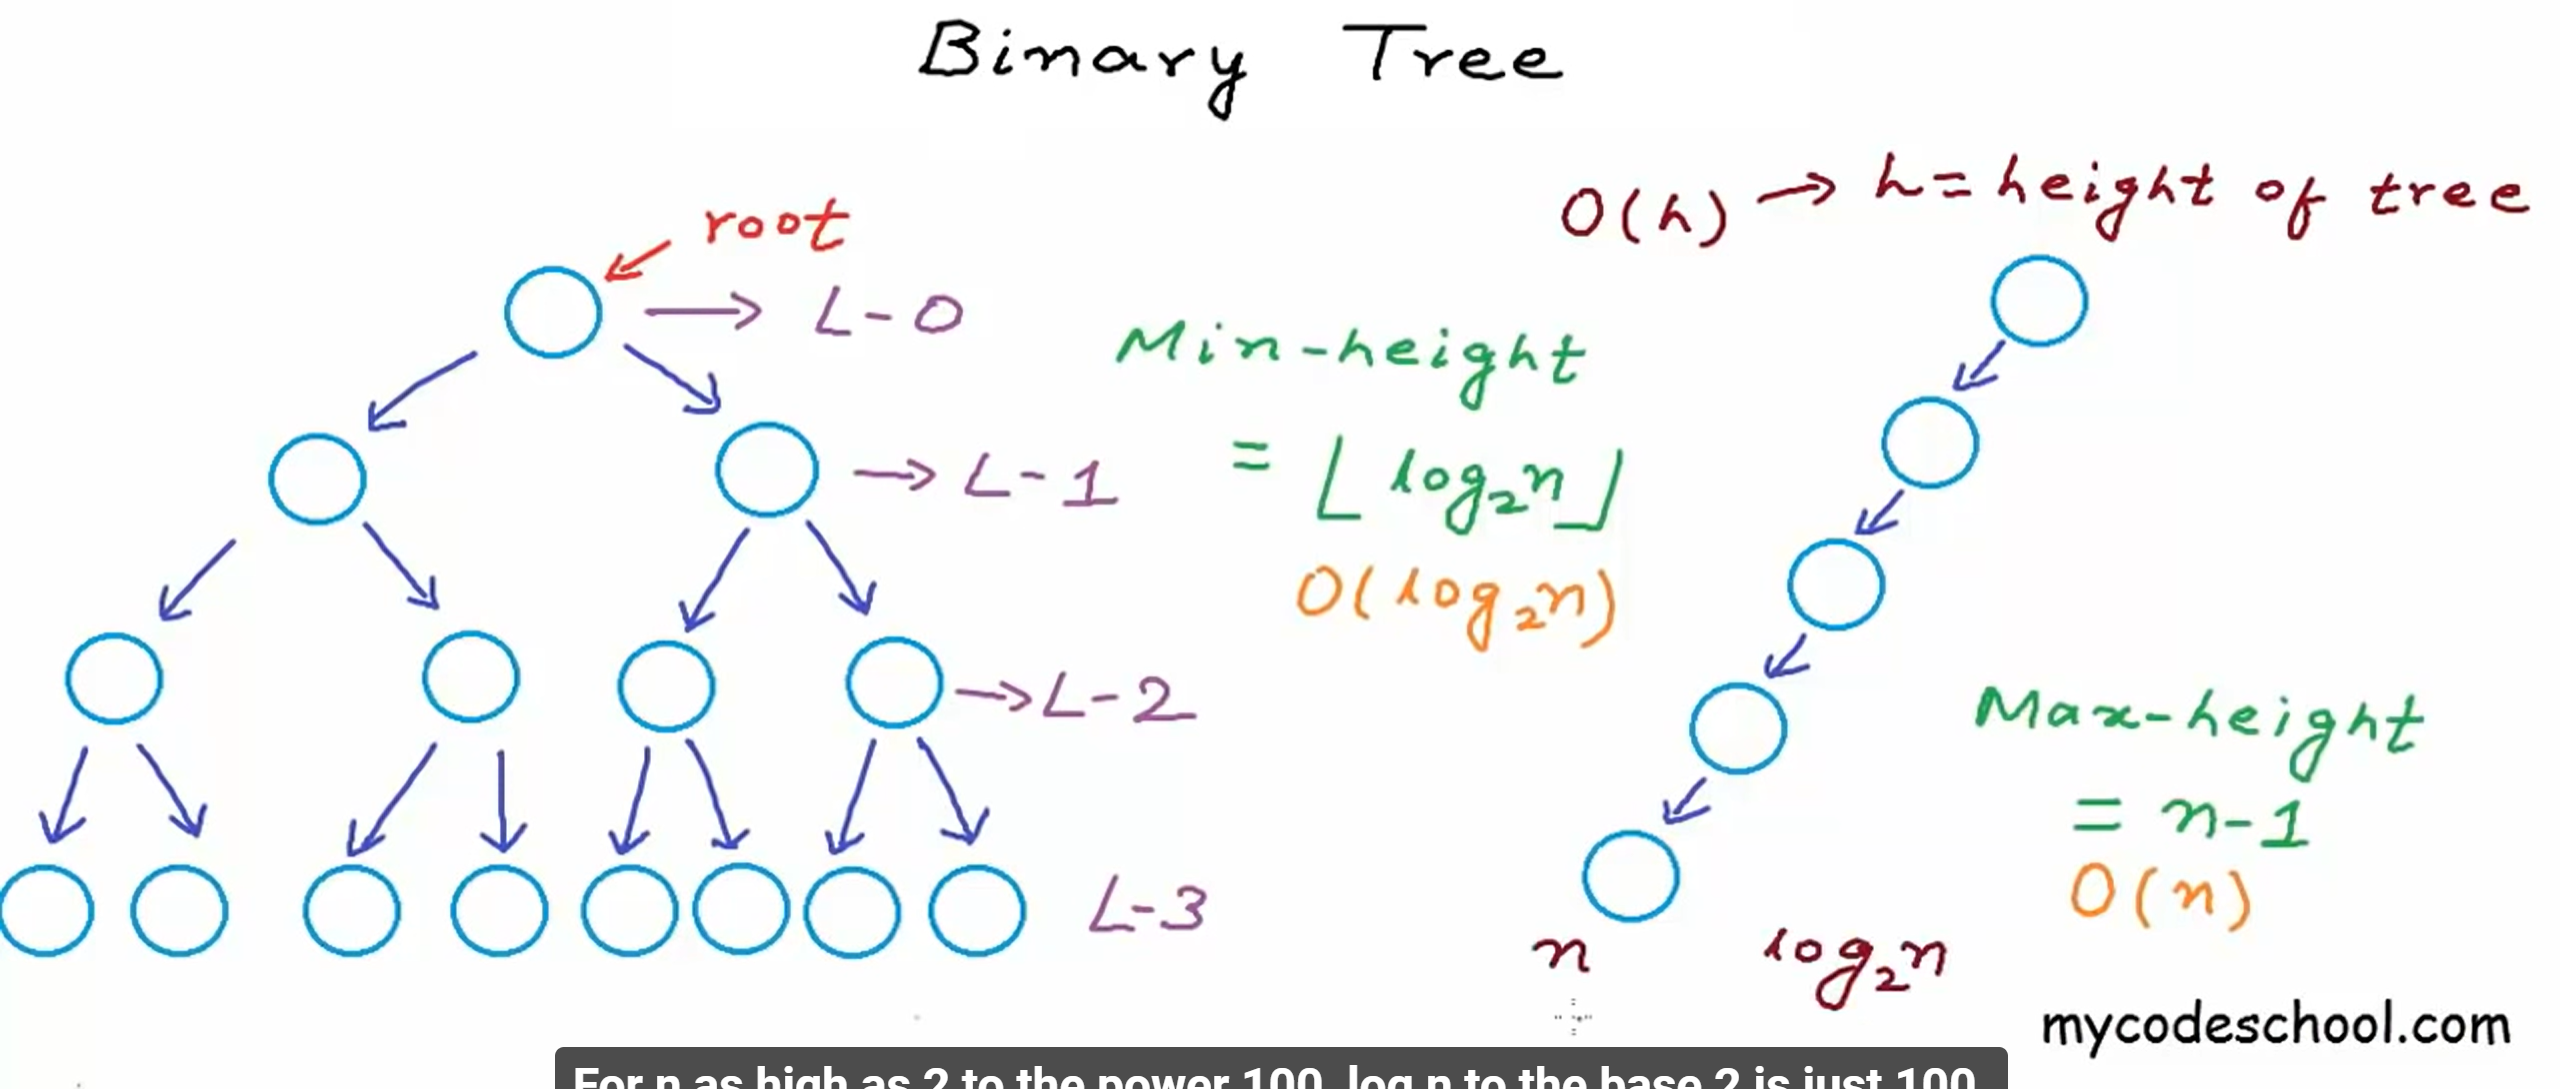 Binary Tree
root
L-0
L-1
L-2
L-3
Min-height
= ⌊log₂n⌋
O(log₂n)
O(h) → h = height of tree
Max-height
= n-1
O(n)
n log₂n
mycodeschool.com
For n as high as 2 to the power 100, log n to the base 2 is just 100